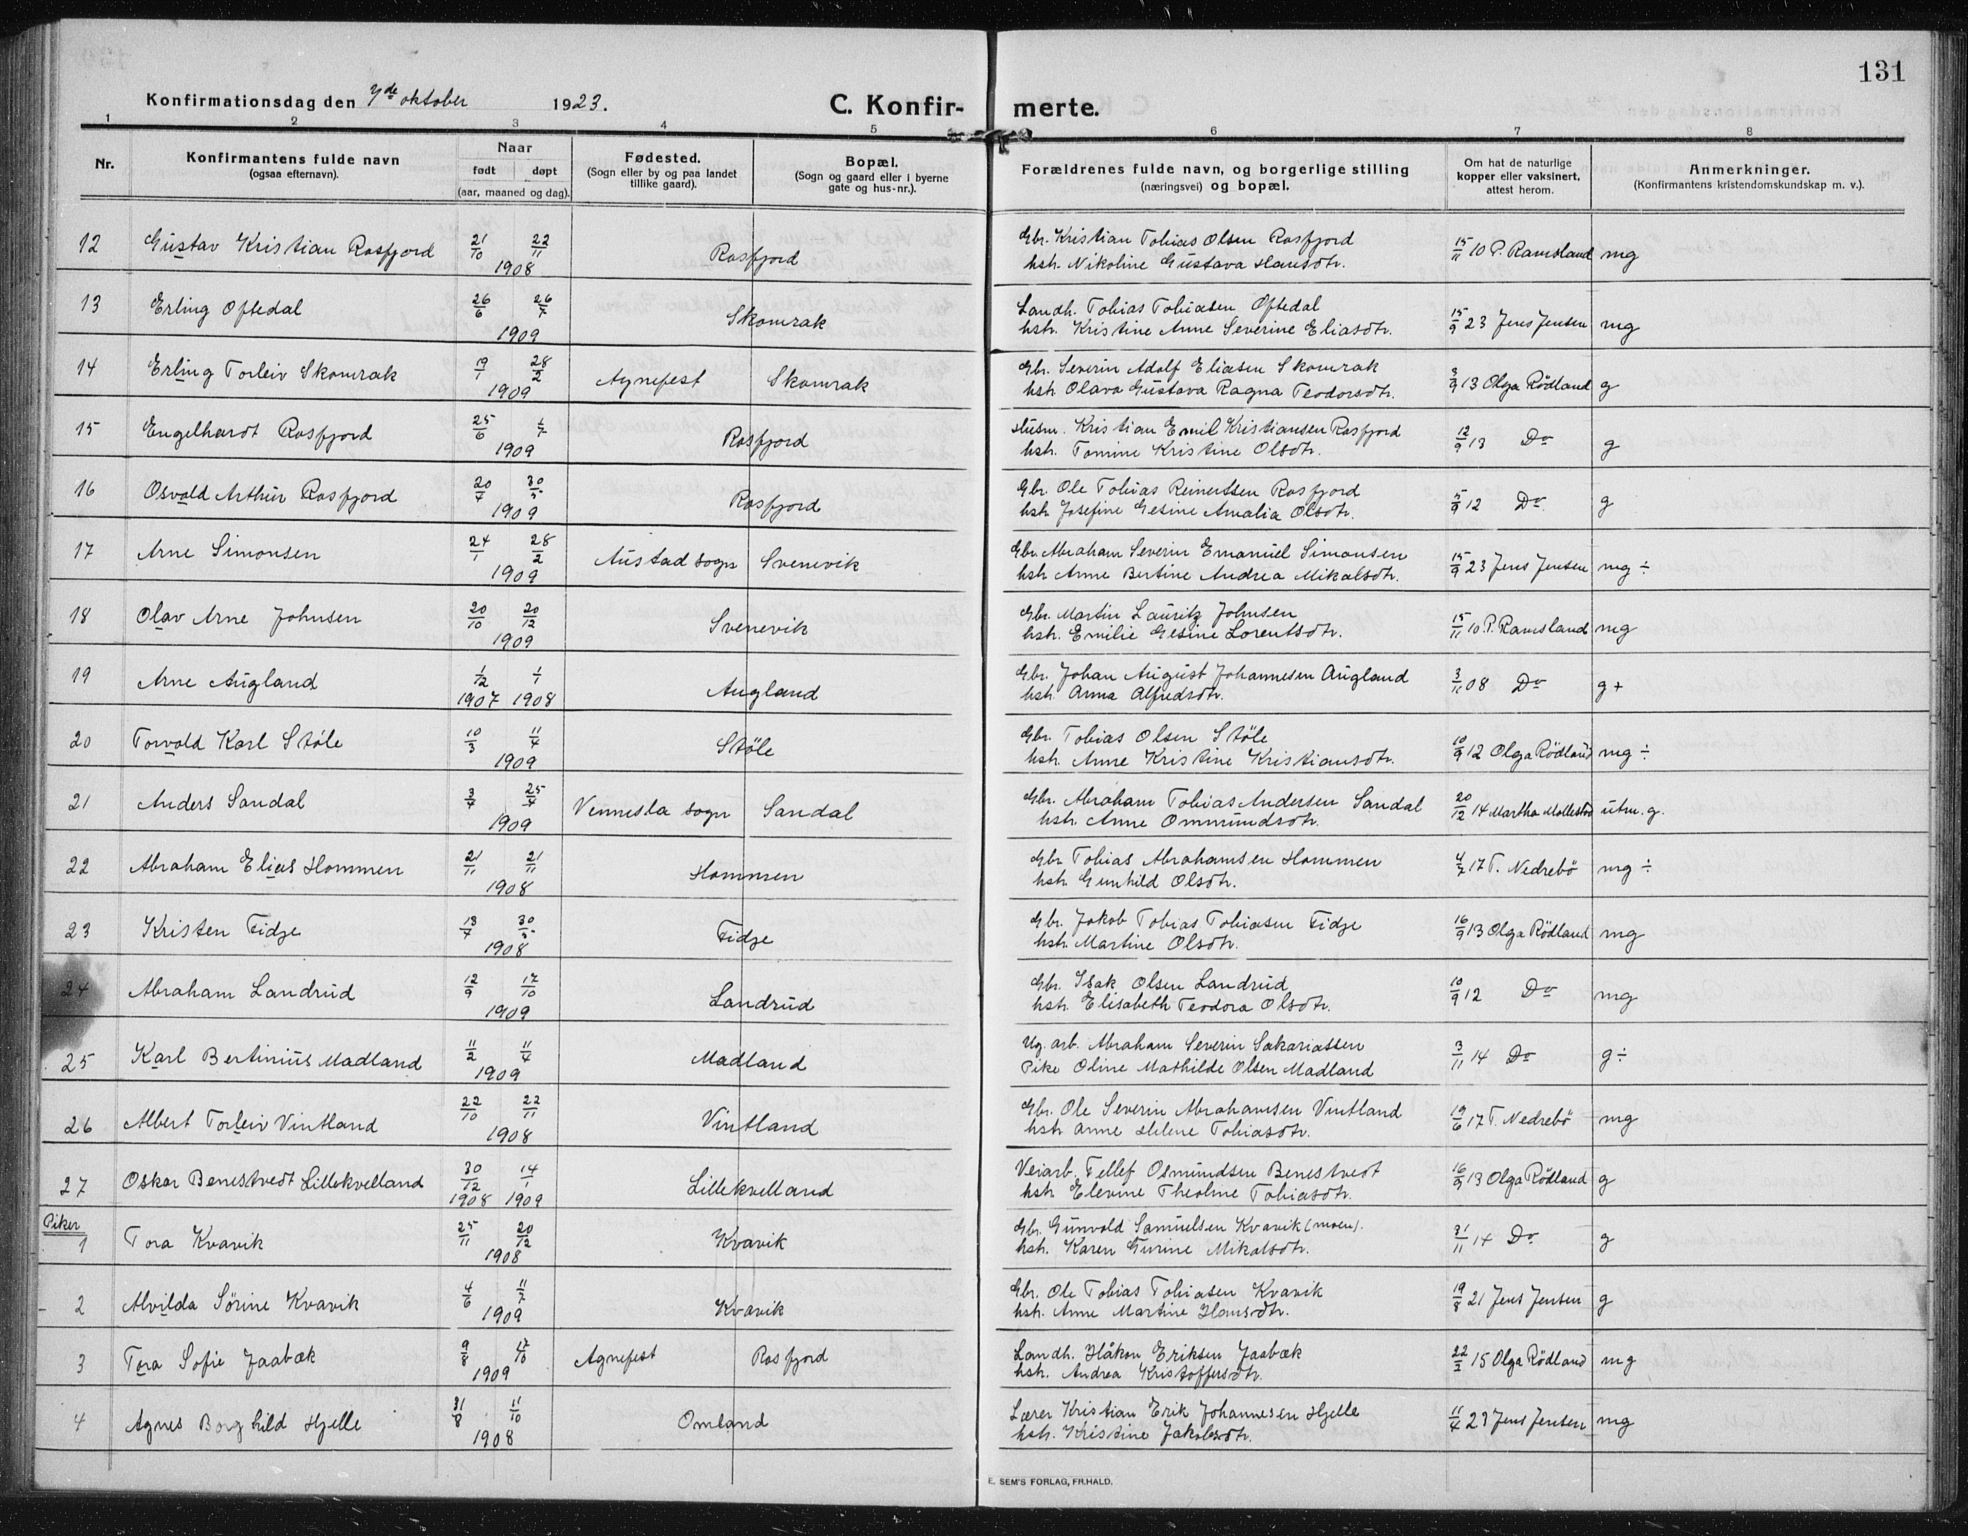 131
Konfirmationsdag den 7de oktober 1923. C. Konfir- merte.
1 2 3 4 5 6 7 8
Nr. Konfirmantens fulde navn (ogsaa efternavn). Naar født døpt (aar, maaned og dag). Fødested. (Sogn eller by og paa landet tillike gaard). Bopæl. (Sogn og gaard eller i byerne gate og hus-nr.). Forældrenes fulde navn, og borgerlige stilling (næringsvei) og bopæl. Om hat de naturlige kopper eller vaksinert, attest herom. Anmerkninger. (Konfirmantens kristendomskundskap m. v.).
12 Gustav Kristian Rosfjord 21/10 22/11 1908 Rosfjord Gbr. Kristian Tobias Olsen Rosfjord
hstr. Nikoline Gustava Hansdtr. 15/11 10 P. Ramsland mg
13 Erling Oftedal 26/6 26/7 1909 Skomrak Landh. Tobias Tobiasen Oftedal
hstr. Kristine Anne Severine Eliasdtr. 15/9 23 Jens Jensen mg
14 Erling Torleiv Skomrak 19/1 28/2 1909 Agnefest Skomrak Gbr. Severin Adolf Eliasen Skomrak
hstr. Olava Gustava Ragna Teodorsdtr. 3/9 13 Olga Rödland g
15 Engelhardt Rosfjord 25/6 1909 Rosfjord Husm. Kristian Emil Kristiansen Rosfjord
hstr. Tomine Kristine Olsdtr. 12/9 13 Do g
16 Osvald Arthur Rosfjord 20/4 30/5 1909 Rosfjord Gbr. Ole Tobias Reinertsen Rosfjord
hstr. Josefine Gesine Amalia Olsdtr. 5/9 12 Do g
17 Arne Simonsen 24/1 28/2 1909 Austad sogn Svenevik Gbr. Abraham Severin Emanuel Simonsen
hstr. Anne Bertine Andrea Mikalsdtr. 15/9 23 Jens Jensen mg ÷
18 Olav Arne Johnsen 20/10 20/12 1909 Svenevik Gbr. Martin Lauritz Johnsen
hstr. Emilie Gesine Lorentsdtr. 15/11 10 P. Ramsland mg
19 Arne Augland 1/12 1/1 1907 1908 Augland Gbr. Johan August Johannesen Augland
hstr. Anna Alfredsdtr. 3/11 08 Do g +
20 Torvald Karl Støle 10/3 11/4 1909 Støle Gbr. Tobias Olsen Støle
hstr. Anne Kristine Kristiansdtr. 10/9 12 Olga Rödland mg ÷
21 Anders Sandal 25/4 1909 Vennesla sogn Sandal Gbr. Abraham Tobias Andersen Sandal
hstr. Anne Ommundsdtr. 20/12 14 Martha Mollestad utm. g.
22 Abraham Elias Hommen 21/11 21/11 1908 Hommen Gbr. Tobias Abrahamsen Hommen
hstr. Gunhild Olsdtr. 17 T. Nedrebö mg ÷
23 Kristen Fidje 30/5 1908 Fidje Gbr. Jakob Tobias Tobiasen Fidje
hstr. Martine Olsdtr. 16/9 13 Olga Rödland mg
24 Abraham Landrud 12/9 17/10 1909 Landrud Gbr. Isak Olsen Landrud
hstr. Elisabeth Teodora Olsdtr. 10/9 12 Do mg
25 Karl Bertinius Madland 11/2 11/4 1909 Madland Ug. arb. Abraham Severin Sakariassen
Pike Oline Mathilde Olsen Madland 3/11 14 Do g ÷
26 Albert Torleiv Vintland 22/10 22/11 1908 Vintland Gbr. Ole Severin Abrahamsen Vintland
hstr. Anne Helene Tobiasdtr. 19/6 17 T. Nedrebö mg
27 Oskar Benestvedt Lillekvelland 30/12 14/1 1908 1909 Lillekvelland Veiarb. Tellef Osmundsen Benestvedt
hstr. Elevine Theoline Tobiasdtr. 16/9 13 Olga Rödland g
Piker
1 Tora Kvavik 25/11 20/12 1908 Kvavik Gbr. Gunvald Samuelsen Kvavik (moen).
hstr. Karen Gurine Mikalsdtr. 14 Do g
2 Alvilda Sørine Kvavik 4/6 11/7 1909 Kvavik Gbr. Ole Tobias Tobiasen Kvavik
hstr. Anne Martine Hansdtr. 19/8 21 Jens Jensen g
3 Tora Sofie Jaabæk 9/8 17/10 1909 Agnefest Rosfjord Landh. Håkon Eriksen Jaabæk
hstr. Andrea Kristoffersdtr. 15 Olga Rödland mg
4 Agnes Borghild Hjelle 31/8 11/10 1908 Omland Lærer Kristian Erik Johannesen Hjelle
hstr. Kristine Jakobsdtr. 11/4 23 Jens Jensen mg
E. SEM'S FORLAG, FR.HALD.